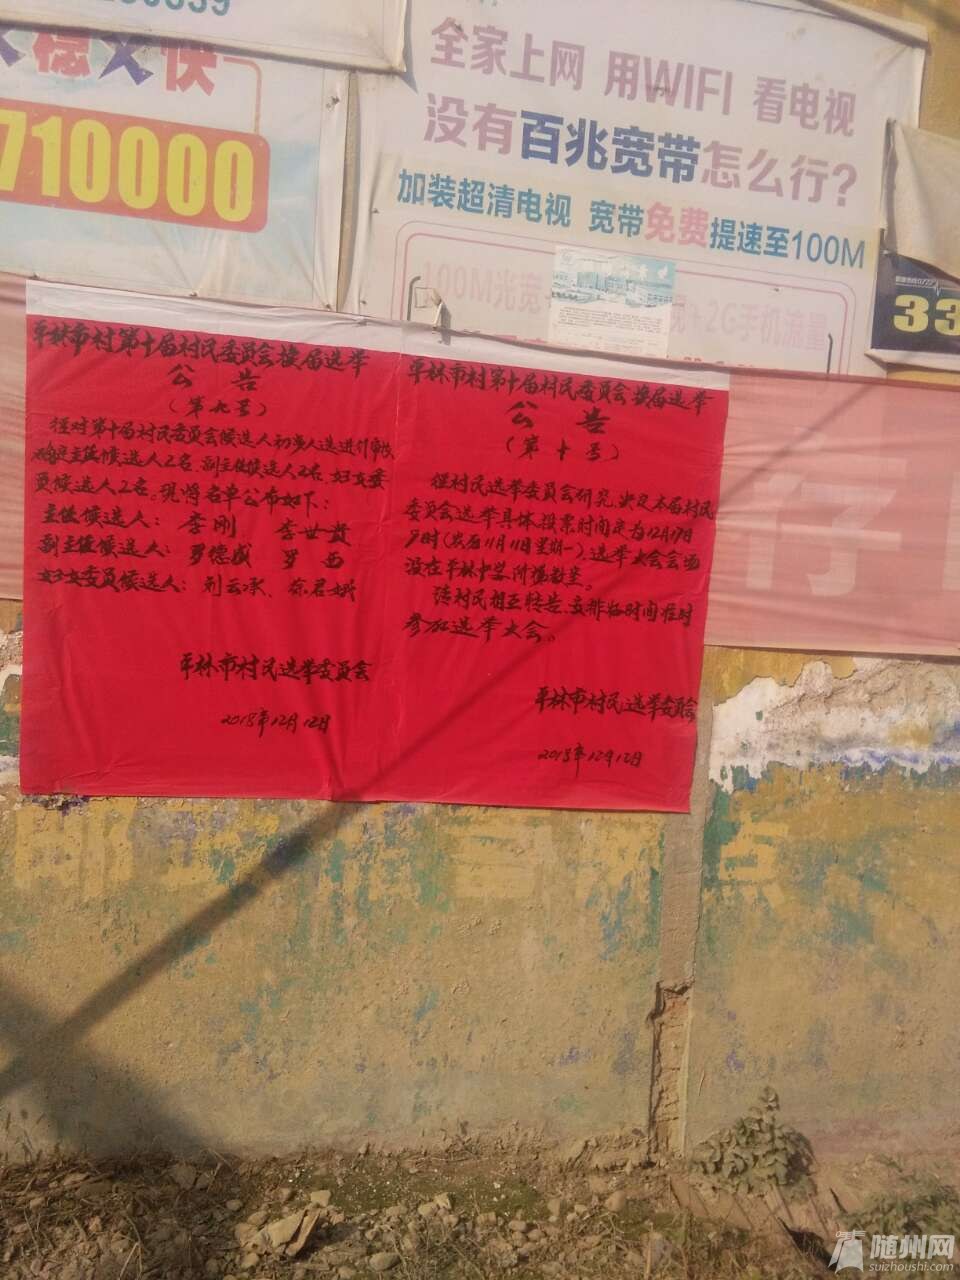 710000
全家上网 用WIFI 看电视
没有百兆宽带怎么行?
加装超清电视 宽带免费提速至100M
100M光宽
+2G手机流量
33
平林市村第十届村民委员会换届选举
公告
(第九号)
经对第十届村民委员会候选人初步人选进行审核
确定主任候选人2名、副主任候选人2名、妇女委
员候选人2名。现将名单公布如下:
主任候选人: 李刚 李世贵
副主任候选人: 罗德成 罗西
妇女委员候选人: 刘云承、徐君娥
平林市村民选举委员会
2018年12月12日
平林市村第十届村民委员会换届选举
公告
(第十号)
经村民选举委员会研究,决定本届村民
委员会选举具体投票时间定为12月17日
9时(农历11月11日星期一),选举大会会场
设在平林中学阶梯教室。
请村民相互转告、安排好时间准时
参加选举大会。
平林市村民选举委员会
2018年12月12日
存
点
随州网
suizhoushi.com